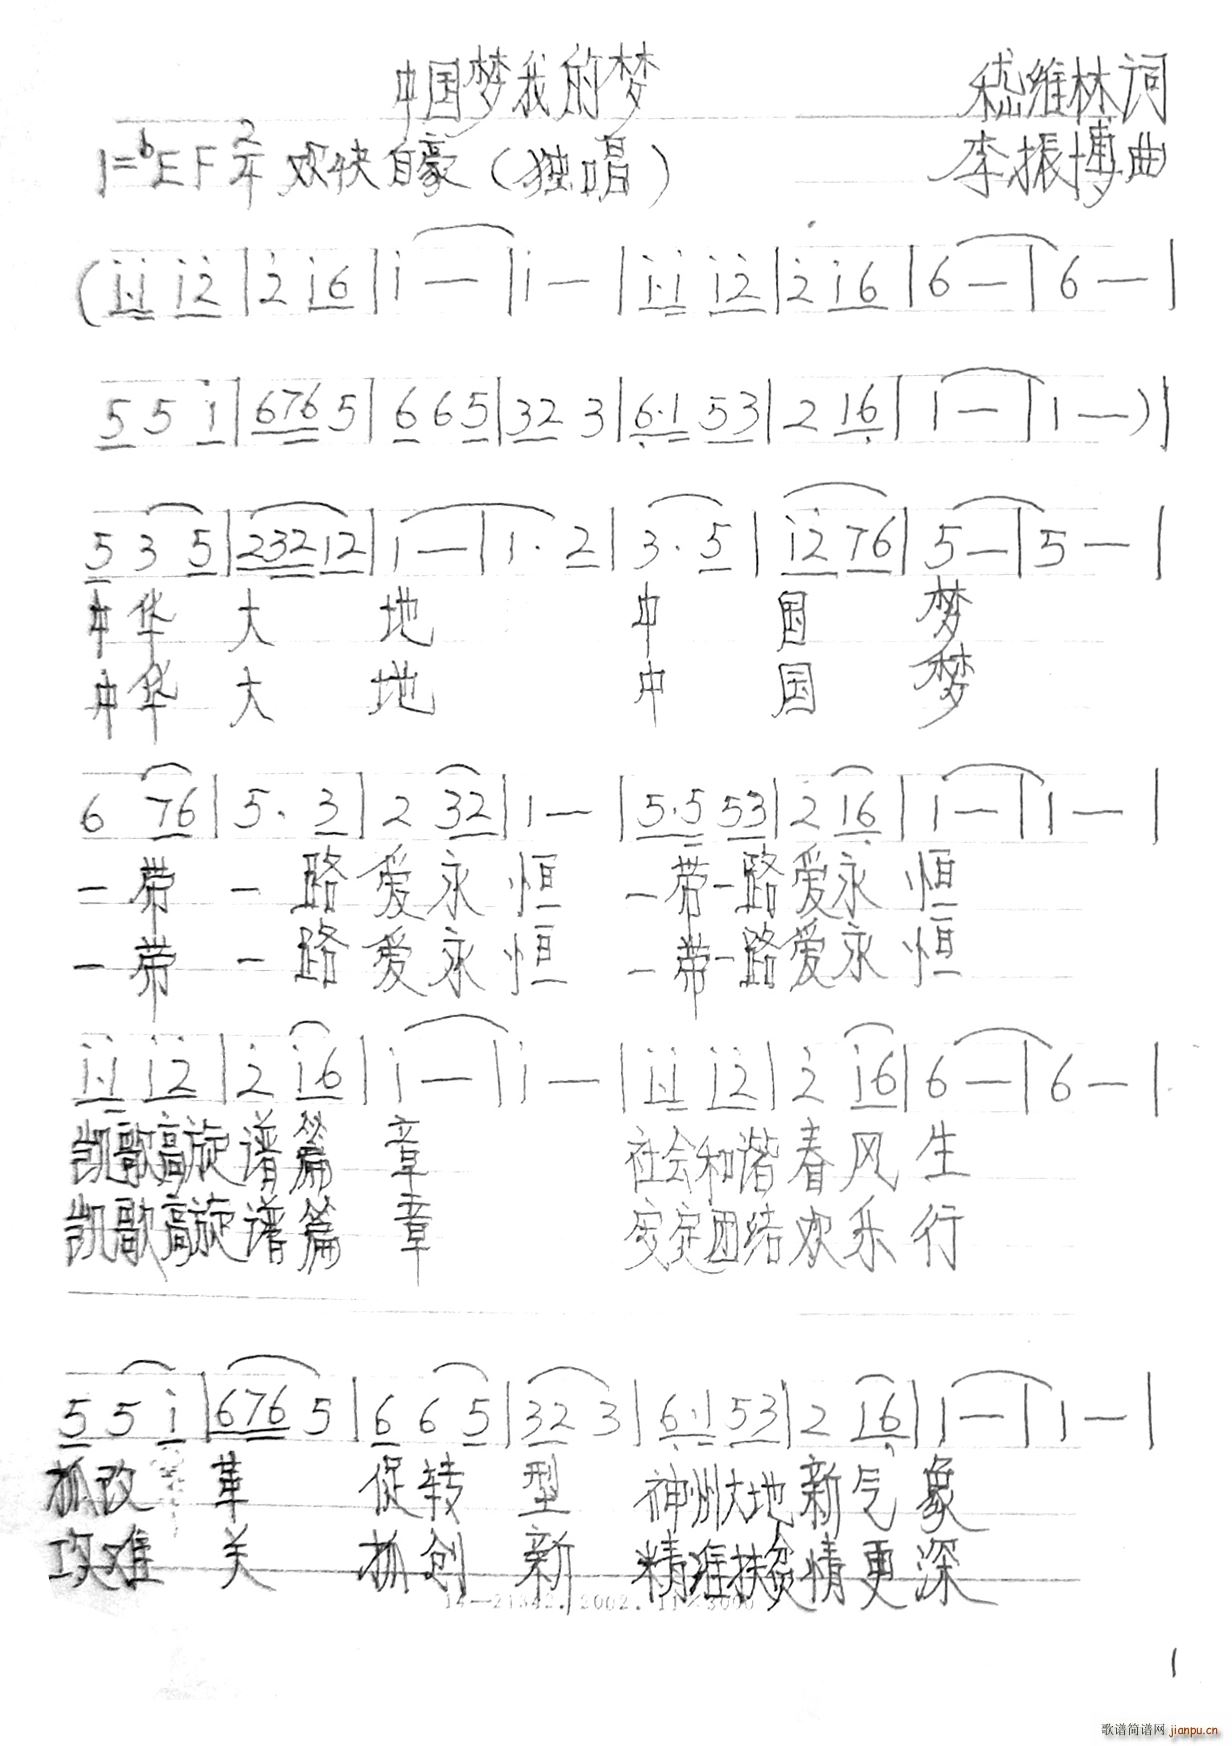 中国梦我的梦 嵇维林词
1=bE F 2/4 欢快自豪（独唱） 李振博曲
( i·i i2 | 2 i6 | i — | i — | i·i i2 | 2 i6 | 6 — | 6 — |
5 5 i | 676 5 | 6 6 5 | 32 3 | 6·1 53 | 2 16 | 1 — | 1 — ) |
5 3 5 | 232 12 | 1 — | 1· 2 | 3· 5 | i2 76 | 5 — | 5 — |
中华大地 中国梦
中华大地 中国梦
6 76 | 5· 3 | 2 32 | 1 — | 5·5 53 | 2 16 | 1 — | 1 — |
一带一路爱永恒 一带一路爱永恒
一带一路爱永恒 一带一路爱永恒
i·i i2 | 2 i6 | i — | i — | i·i i2 | 2 i6 | 6 — | 6 — |
凯歌高旋谱篇章 社会和谐春风生
凯歌高旋谱篇章 安定团结欢乐行
5 5 i | 676 5 | 6 6 5 | 32 3 | 6·1 53 | 2 16 | 1 — | 1 — |
抓改革 促转型 神州大地新气象
攻难关 抓创新 精准扶贫情更深
14—21342.2002.11×3000
1
歌谱简谱网 jianpu.cn